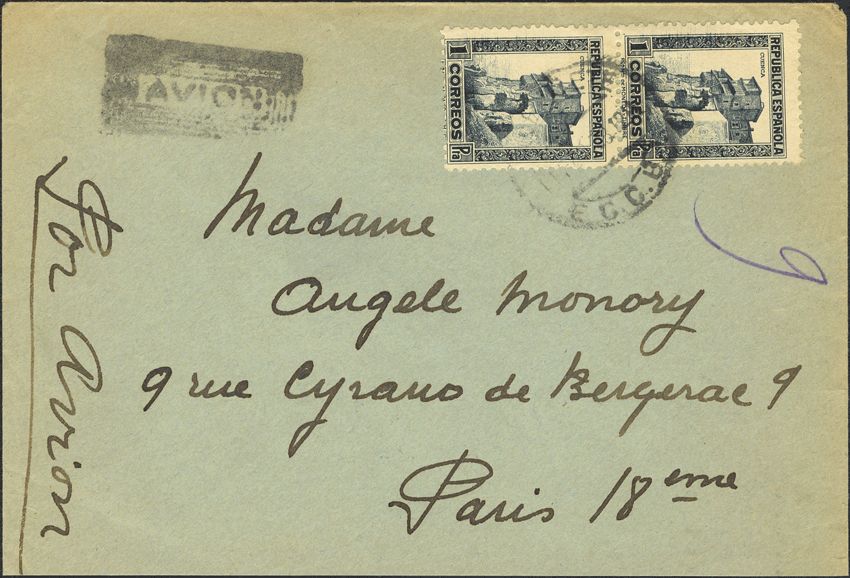 AVION
1 REPUBLICA ESPAÑOLA
CUENCA
CORREOS Pta
1 REPUBLICA ESPAÑOLA
CUENCA
CORREOS Pta
E.C.C.B
Madame
Angele Monory
9 rue Cyrano de Bergerac 9
Paris 18eme
Por Avion
9